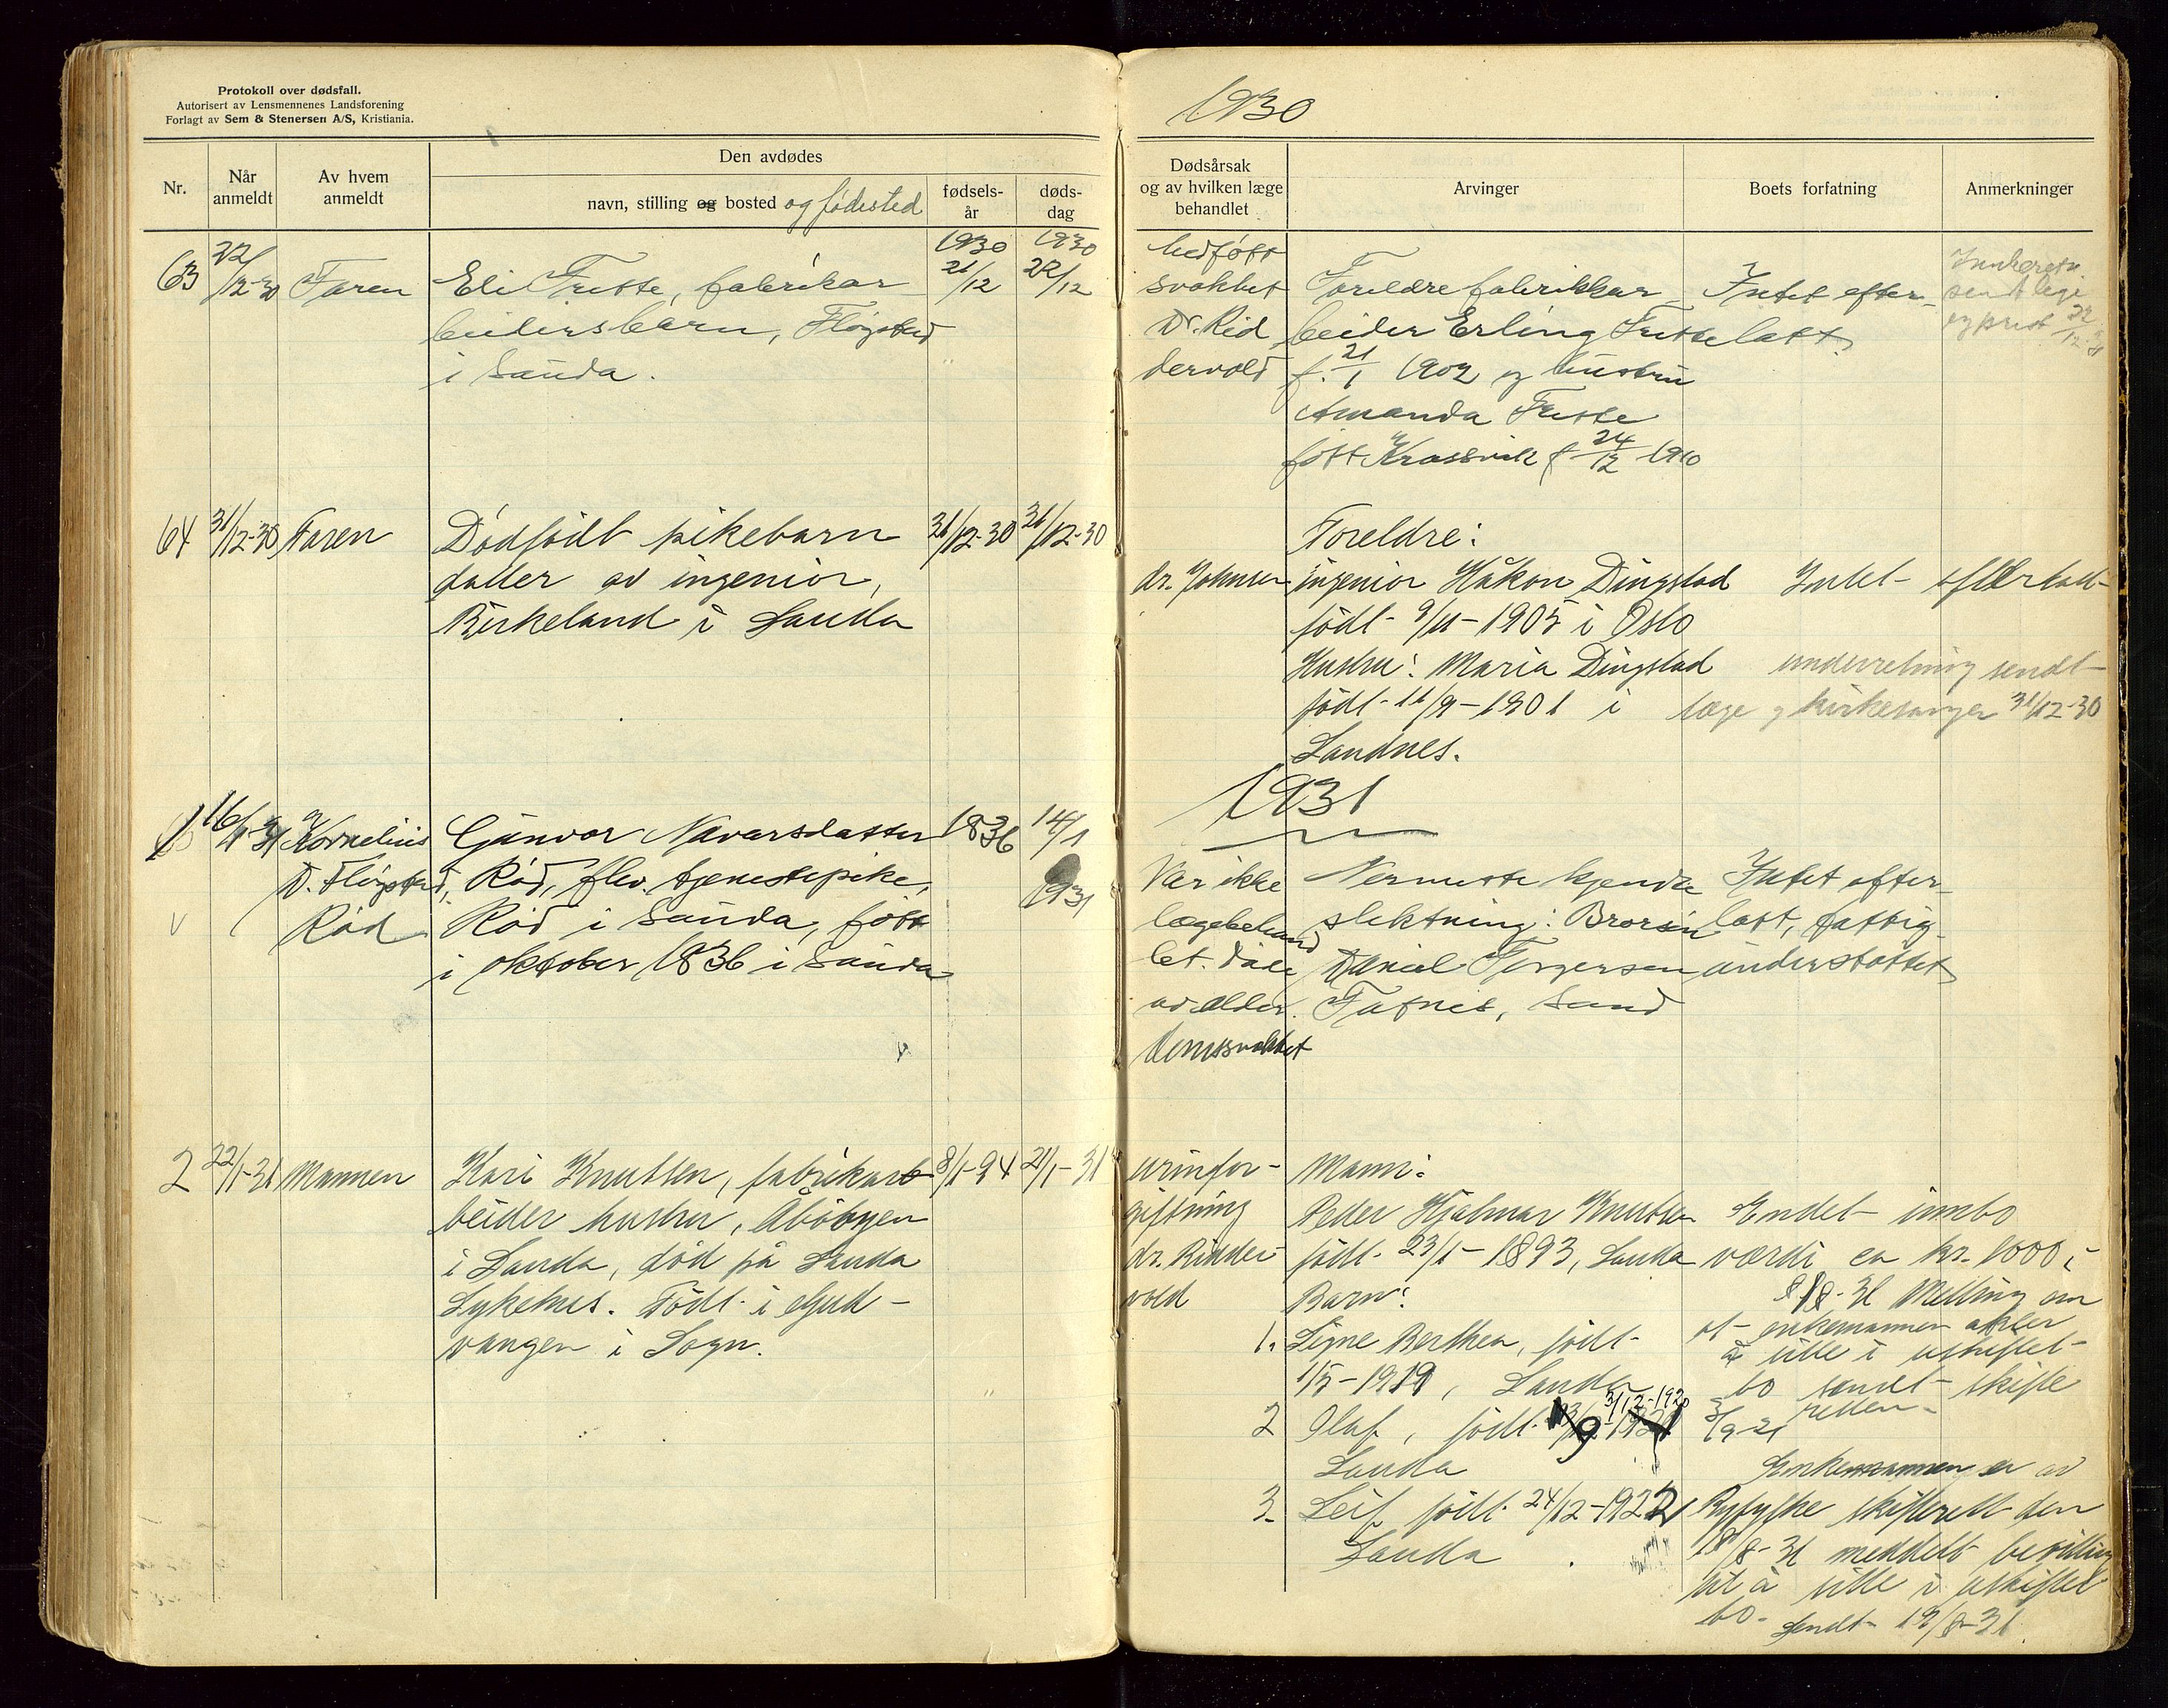 Protokoll over dødsfall.
Autorisert av Lensmennenes Landsforening
Forlagt av Sem & Stenersen A/S, Kristiania.
Nr.
Når
anmeldt
Av hvem
anmeldt
Den avdødes
navn, stilling og bosted og fødested
fødsels-
år
døds-
dag
63
22/12-30
Faren
Eli Frette, fabrikar
beidersbarn, Fløgstad
i Sauda.
1930
21/12
1930
22/12
64
31/12-30
Faren
Dødfødt pikebarn
datter av ingeniør,
Birkeland i Sauda
31/12-30
31/12-30
1
16/1-31
Kornelius
D. Fløgstad,
Rød
Gunvor Navarsdatter
Rød, flev. tjenestepike,
Rød i Sauda, født
i oktober 1836 i Sauda
1836
14/1
1931
2
22/1-31
Mannen
Kari Knutsen, fabrikarb
beider hustru, Åbøbyen
i Sauda, død på Sauda
Sykehus. Født i Gud-
vangen i Sogn.
8/1-94
21/1-31
1930
Dødsårsak
og av hvilken læge
behandlet
Arvinger
Boets forfatning
Anmerkninger
Medført
svakhet
Dr. Rid
dervold
Foreldre fabrikkar
beider Erling Frette
f. 21/1 1902 og hustru
Amanda Frette
født Krossvik f 24/12 1910
Intet efter-
latt
Innberetn.
sendt lege
og prest 22/12
dr. Johnsen
Foreldre:
ingeniør Håkon Dingstad
født 9/11-1905 i Oslo
Hustru: Maria Dingstad
født 16/9-1901 i
Sandnes.
Intet efterlatt
underretning sendt
læge og kirkesanger 31/12-30
1931
Var ikke
lægebehand
let. Døde
av alder
domssvakhet
Nermeste kjendte
slektning: Brorsøn
Daniel Torgersen
Fatnes, Sand
Intet efter-
latt, fattig-
understøttet
urinfor-
giftning
dr. Ridder-
vold
Mann:
Peder Hjalmar Knutsen
født 23/1-1893, Sauda
Barn:
1. Signe Berthea, født
1/5-1919, Sauda
3/12-1920
2 Olaf, født
Sauda
3. Leif født 24/12-1922
Sauda
Endel innbo
værdi ca kr. 1000,-
8/8-31 Melding om
at enkemannen akter
å sitte i uskiftet
bo sendt skifte
retten.
Enkemannen er av
Ryfylke skifterett den
18/8-31 meddelt bevilling
til å sitte i uskiftet
bo-
Sendt 19/8-31.